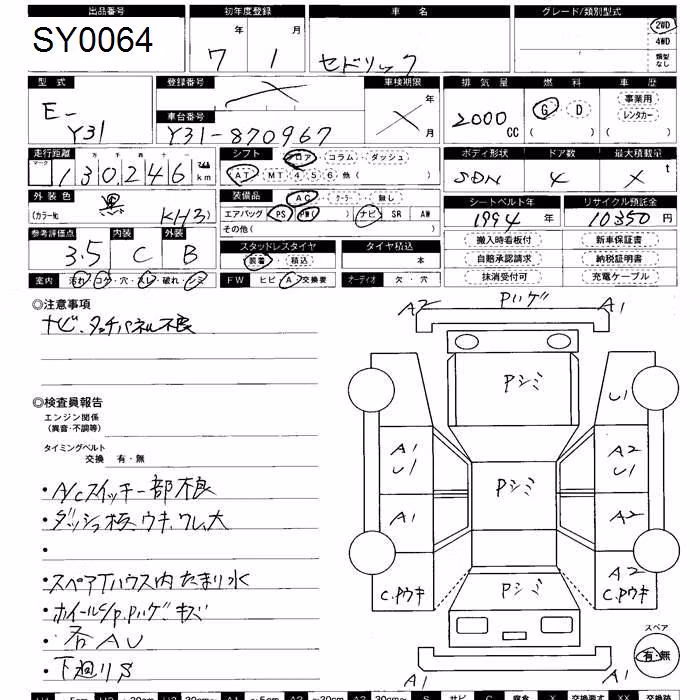 出品番号 初年度登録 車名 グレード/類別型式
SY0064 7年 1月 セドリック 2WD 4WD 類型なし
型式 登録番号 車検期限 排気量 燃料 車歴
E-Y31 × ×年月 2000cc G D ( ) 事業用 レンタカー ( )
車台番号
Y31-870967
走行距離 シフト フロア コラム ダッシュ ボディ形状 ドア数 最大積載量
マーク 十万千百十 マイル
130246km AT MT 4 5 6 他( ) SDN 4 × t
外装色 装備品 AC クーラー 無し シートベルト年 リサイクル預託金
(カラーNo. 黒 KH3) エアバッグ PS PW ( ) ナビ SR AW 1994年 10350円
その他( )
参考評価点 内装 外装 スタッドレスタイヤ タイヤ積込 搬入時看板付 新車保証書
3.5 C B 装着 積込 本 自賠承認請求 納税証明書
室内 汚れ・コゲ・穴・スレ・破れ・シミ FW ヒビ A 交換要 オーディオ 欠・穴 抹消受付可 充電ケーブル
◎注意事項
ナビ、タッチパネル不良
◎検査員報告
エンジン関係
(異音・不調等)
タイミングベルト
交換 有・無
・A/Cスイッチ一部不良
・ダッシュ板、ウキ、ワレ、大
・
・スペアTハウス内たまり水
・ホイールC/P.Pハゲキズ
・各AU
・下廻りS
A2 Pハゲ A1
Pシミ U1
A1 U1 Pシミ A2 U1
A1 A2
C.Pウキ Pシミ A2 C.Pウキ
A1 A1
スペア
有・無